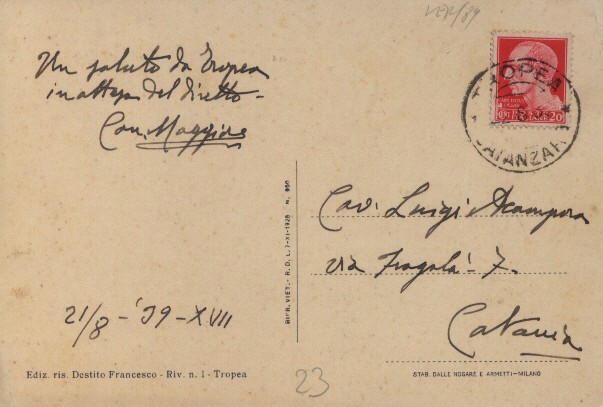 VER/39
Un saluto da Tropea
in attesa del diretto -
TROPEA
CATANZARO
20
Cav. Luigi Acampora
via Fragalà - 7.
Catania
21/8 - '39 - XVII
RIPR. VIET. - R. D. L. 7-XI-1925 N. 950
Ediz. ris. Destito Francesco - Riv. n. 1 - Tropea
23
STAB. DALLE NOGARE E ARMETTI - MILANO